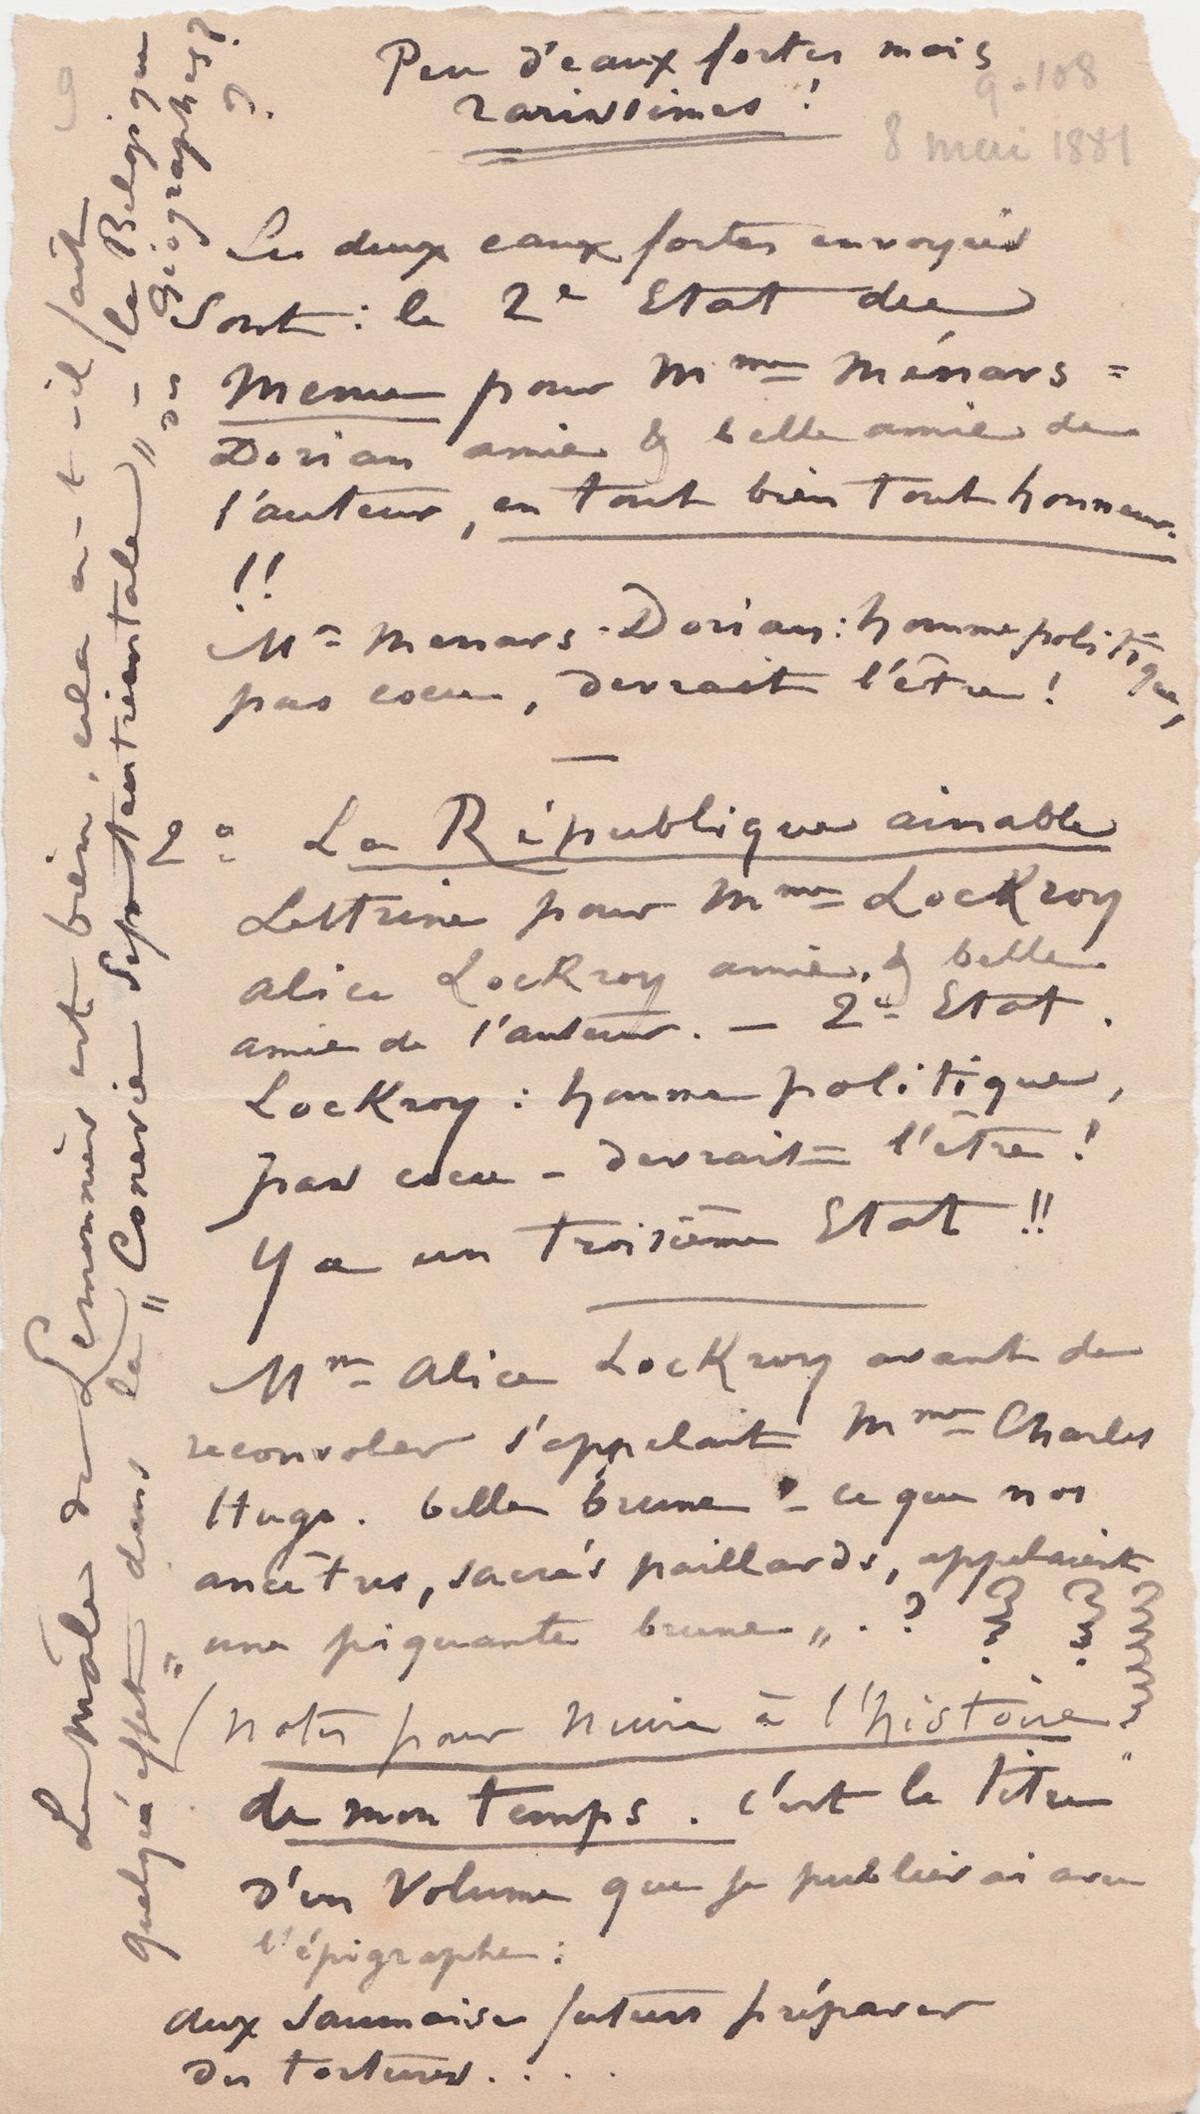 Peu d'eaux fortes mais
rarissimes !
9-108
8 mai 1881
9
Les deux eaux fortes envoyées
Sont : le 2e Etat du
Menu pour Mme Ménars =
Dorian amie & belle amie de
l'auteur, en tout bien tout honneur.
!!
Mr Menars-Dorian : homme politique,
pas cocu, devrait l'être !
—
2° : La République aimable
Lettrine pour Mme LocKroy
Alice LocKroy amie & belle
amie de l'auteur. — 2e Etat.
LocKroy : homme politique,
pas cocu - devrait l'être !
Y a un troisième Etat !!
Mme Alice LocKroy avant de
reconvoler s'appelait Mme Charles
Hugo. belle brune - ce que nos
ancêtres, sacrés paillards, appelaient
" une piquante brune „ . ? ? ? ?
(notes pour nuire à l'histoire
de mon temps. c'est le titre
d'un Volume que je publierai avec
l'épigraphe :
Aux Saumaise futurs préparer
des tortures. . . .
Le mâle de Lemonnier est bien, cela a-t-il fait
quelqu'effet dans la " Conerie Septentrionale „ - la Belgique
des géographes ?
?